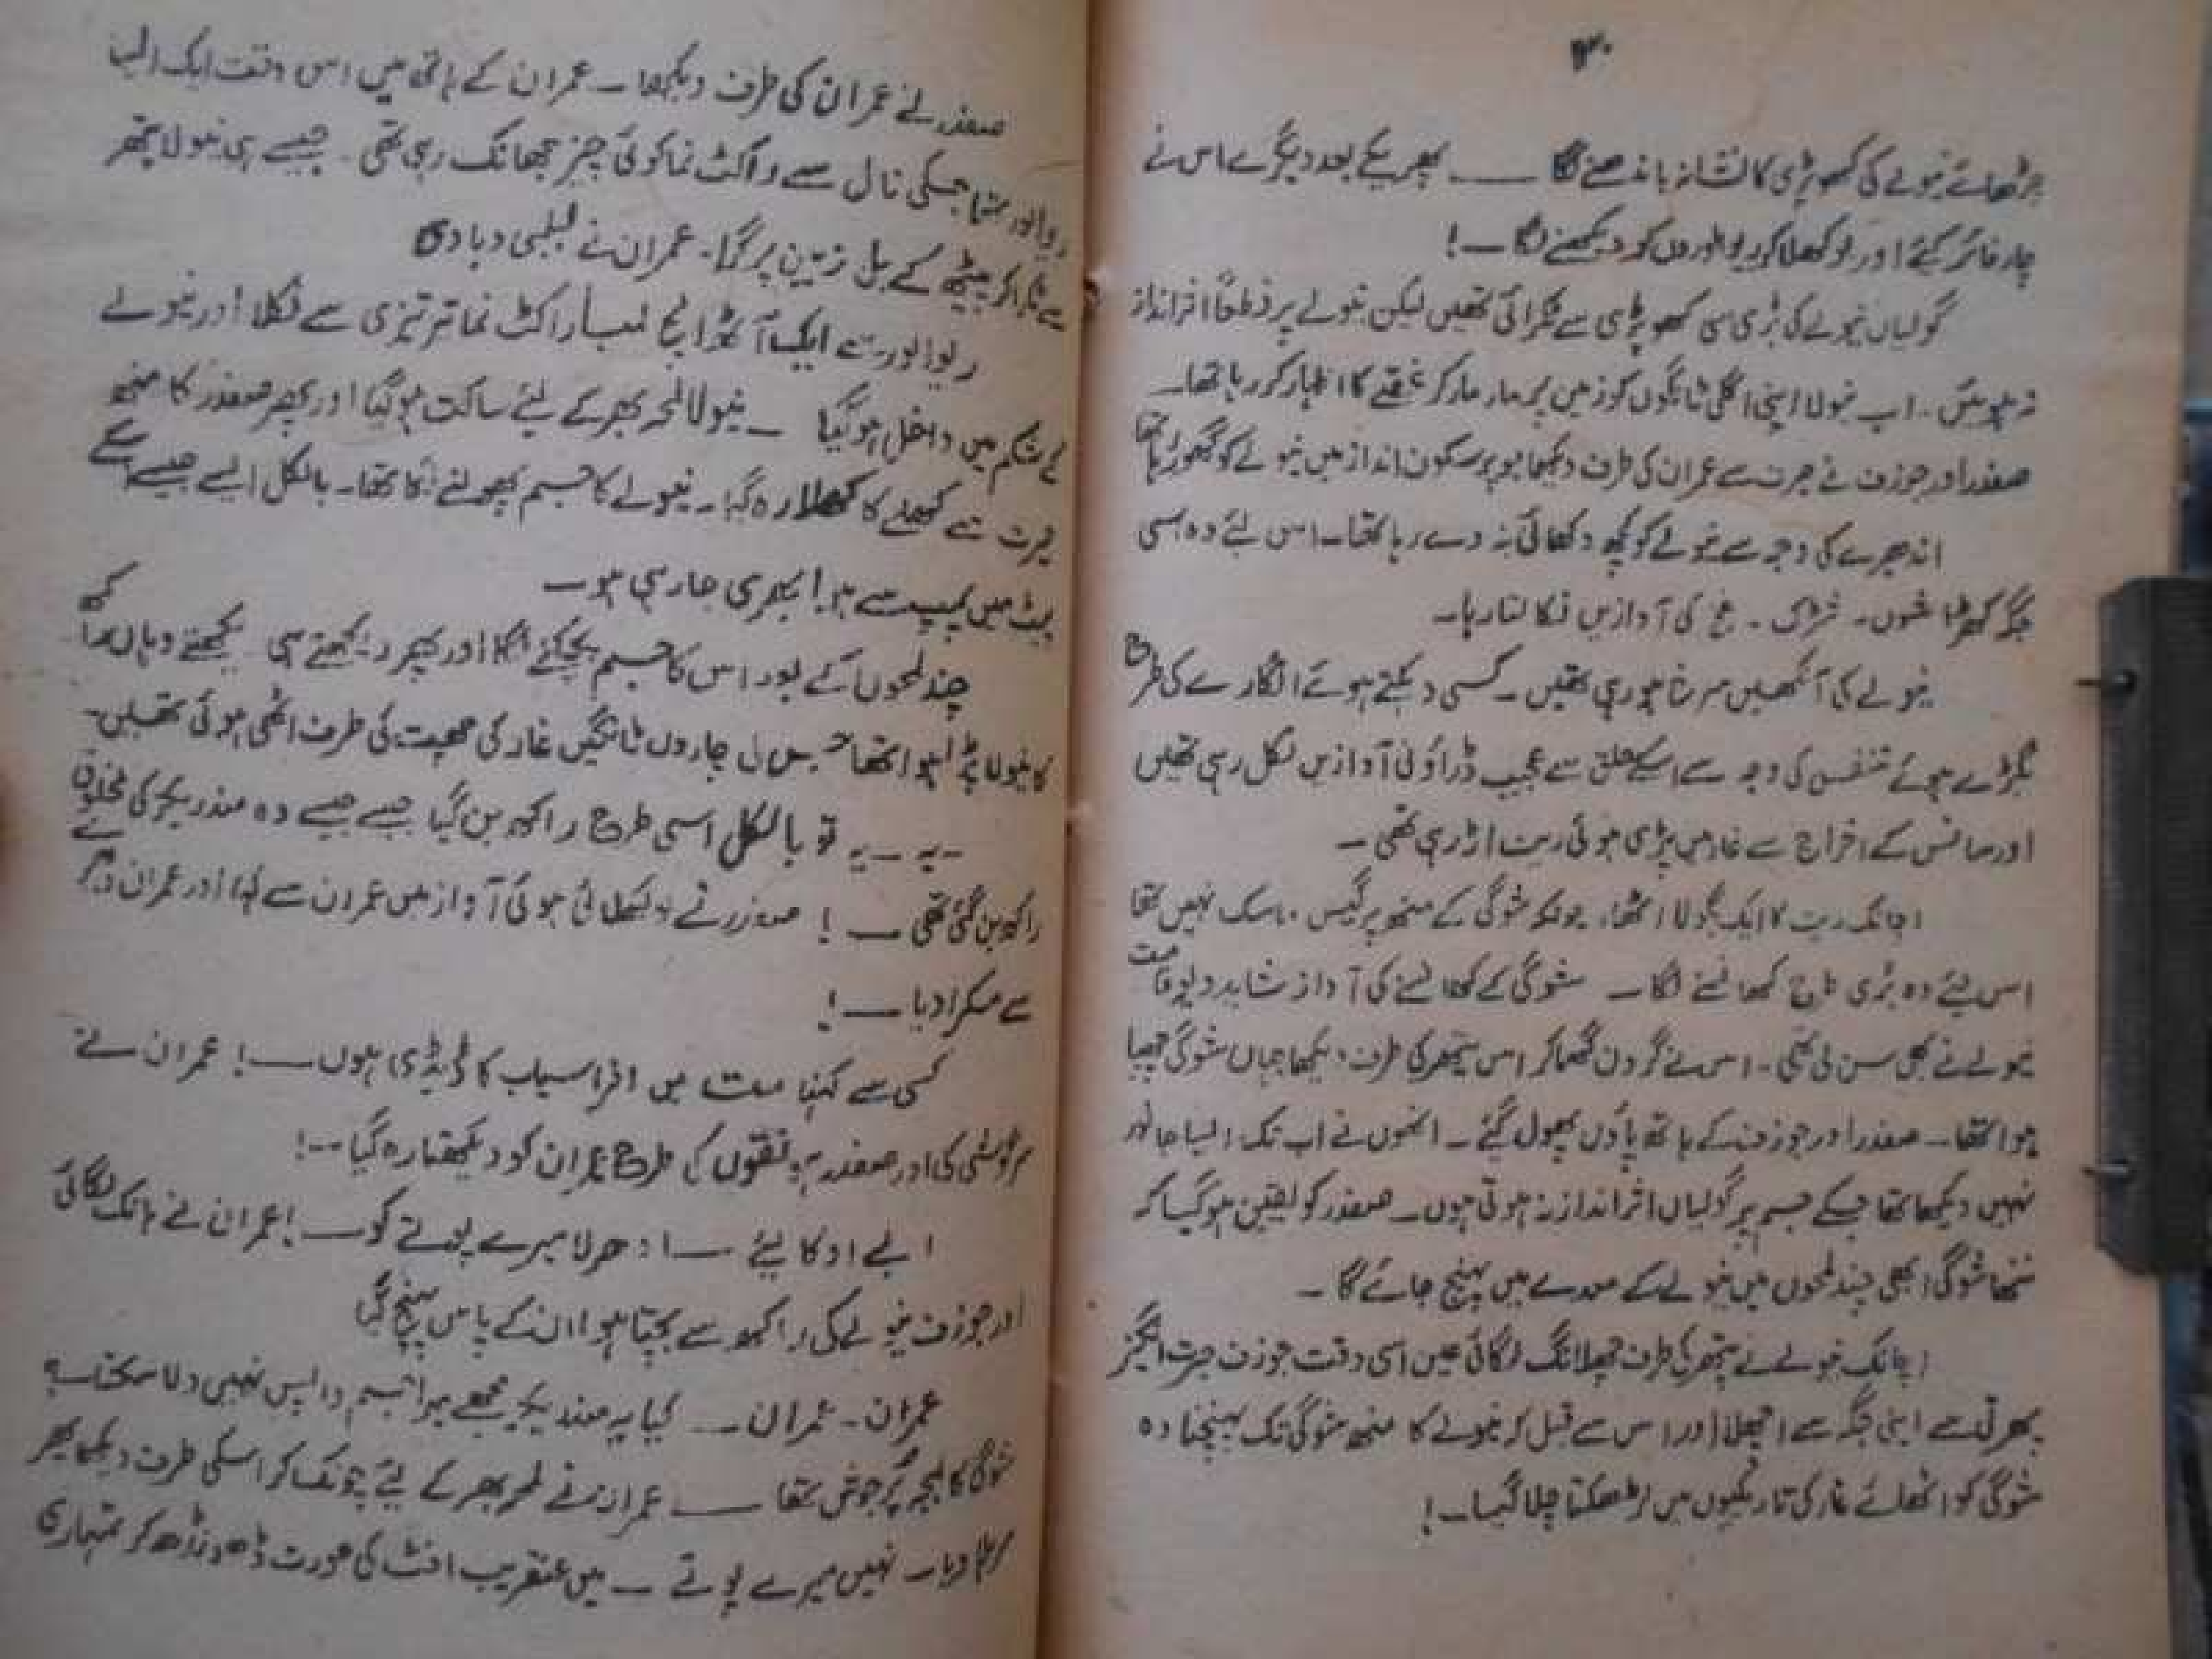 ۳۰
چڑھائے نیولے کی کھوپڑی کا نشانہ باندھنے لگا ــــ پھر یکے بعد دیگرے اس نے
چار فائر کئے اور بوکھلا کر ریوالوروں کو دیکھنے لگا ـ!
گولیاں نیولے کی بڑی سی کھوپڑی سے ٹکرائی تھیں لیکن نیولے پر قطعاً اثر انداز
نہ ہوئیں ـ اب نیولا اپنی اگلی ٹانگوں کو زمین پر مار مار کر غصے کا اظہار کر رہا تھا ـ
صفدر اور جوزف نے حیرت سے عمران کی طرف دیکھا جو پرسکون انداز میں نیولے کو گھور رہا تھا
اندھیرے کی وجہ سے نیولے کو کچھ دکھائی نہ دے رہا تھا ـ اس لئے وہ اسی
جگہ کھڑا شوں ـ ـ کی آوازیں نکالتا رہا ـ
نیولے کی آنکھیں سرخ ہو رہی تھیں ـ کسی دہکتے ہوئے انگارے کی طرح
بگڑے ہوئے تنفس کی وجہ سے اسکے حلق سے عجیب ڈراؤنی آوازیں نکل رہی تھیں
اور سانس کے اخراج سے غار میں پڑی ہوئی ریت اڑ رہی تھی ـ
اچانک ریت کا ایک بگولا اٹھا، چونکہ شوگی کے منھ پر گیس ماسک نہیں تھا
اس لیئے وہ بڑی طرح کھانسنے لگا ـ شوگی کے کھانسنے کی آواز شاید دیوقامت
نیولے نے بھی سن لی تھی ـ اس نے گردن گھما کر اس پتھر کی طرف دیکھا جہاں شوگی چھپا
ہوا تھا ـ صفدر اور جوزف کے ہاتھ پاؤں پھول گئے ـ انھوں نے اب تک ایسا جانور
نہیں دیکھا تھا جسکے جسم پر گولیاں اثر انداز نہ ہوتی ہوں ـ صفدر کو یقین ہو گیا کہ
ننھا شوگی ابھی چند لمحوں میں نیولے کے معدے میں پہنچ جائے گا ـ
اچانک نیولے نے پتھر کی طرف چھلانگ لگائی عین اسی وقت جوزف حیرت انگیز
پھرتی سے اپنی جگہ سے اچھلا اور اس سے قبل کہ نیولے کا منھ شوگی تک پہنچتا وہ
شوگی کو اٹھائے غار کی تاریکیوں میں لڑھکتا چلا گیا ـ!
صفدر نے عمران کی طرف دیکھا ـ عمران کے ہاتھ میں اس وقت ایک ایسا
ریوالور تھا جسکی نال سے راکٹ نما کوئی چیز جھانک رہی تھی ـ جیسے ہی نیولا پتھر
سے ٹکرا کر پیٹھ کے بل زمین پر گرا ـ عمران نے لبلبی دبا دی
ریوالور سے ایک آٹھ انچ لمبا راکٹ نما تیر تیزی سے نکلا اور نیولے
کے شکم میں داخل ہو گیا ـ نیولا لمحہ بھر کے لیئے ساکت ہو گیا اور پھر صفدر کا منھ
حیرت سے کھلے کا کھلا رہ گیا ـ نیولے کا جسم پھولنے لگا تھا ـ بالکل ایسے جیسے اس کے
پیٹ میں پمپ سے ہوا بھری جا رہی ہو ـ
چند لمحوں کے بعد اس کا جسم پچکنے لگا اور پھر دیکھتے ہی دیکھتے وہاں راکھ
کا نیولا پڑا ہوا تھا جس کی چاروں ٹانگیں غار کی چھت کی طرف اٹھی ہوئی تھیں ـ
ـ یہ ـ یہ تو بالکل اسی طرح راکھ بن گیا جیسے جیسے وہ کی مخلوق
راکھ بن گئی تھی ـ! صفدر نے بوکھلائی ہوئی آواز میں عمران سے کہا اور عمران
سے مسکرا دیا ـ!
کسی سے کہنا مت میں افراسیاب کا ڈیڈی ہوں ـ! عمران نے
سرگوشی کی اور صفدر ہونقوں کی طرح عمران کو دیکھتا رہ گیا ـ!
ابے او کالیئے ـ ادھر لا میرے پوتے کو ـ! عمران نے ہانک لگائی
اور جوزف نیولے کی راکھ سے بچتا ہوا ان کے پاس پہنچ گیا
عمران ـ عمران ـ کیا یہ مجھے میرا جسم واپس نہیں دلا سکتا ـ؟
شوگی کا لہجہ پرجوش تھا ـ عمران نے لمحہ بھر کے لیئے چونک کر اسکی طرف دیکھا پھر
ـ نہیں میرے پوتے ـ میں عنقریب کی عورت ڈھونڈھ کر تمہاری